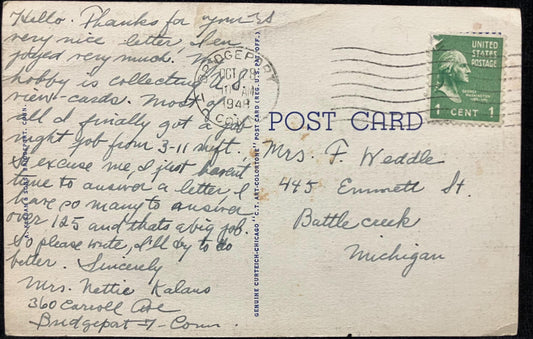 Hello. Thanks for your
very nice letter, I en
joyed very much. My
hobby is collecting
view-cards. Most of
all I finally got a job
night job from 3-11 shift.
So excuse me, I just haven't
time to answer a letter I
have so many to answer
over 125 and thats a big job.
So please write, I'll try to do
better. Sincerely
Mrs. Nettie Kalano
360 Carroll Ave
Bridgeport 7- Conn.
GENUINE CURTEICH-CHICAGO "C.T. ART-COLORTONE" POST CARD (REG. U.S. PAT. OFF.)
BRIDGEPORT
OCT 28
AM
1948
CONN.
POST CARD
UNITED
STATES
POSTAGE
GEORGE
WASHINGTON
1 CENT 1
Mrs. F. Weddle
445 Emmett St.
Battle creek
Michigan